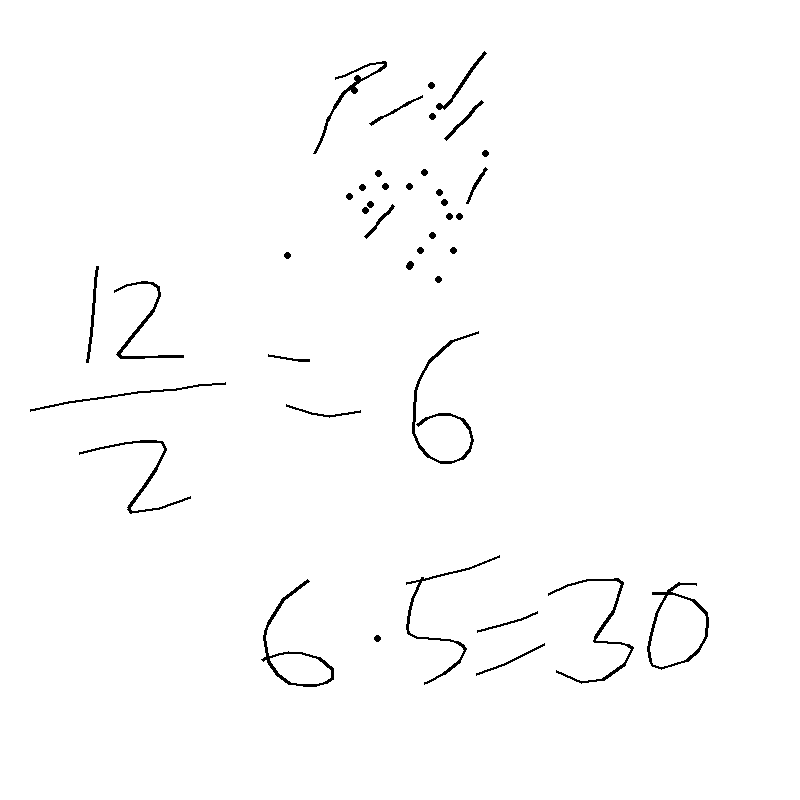 12/2 = 6
6·5=30